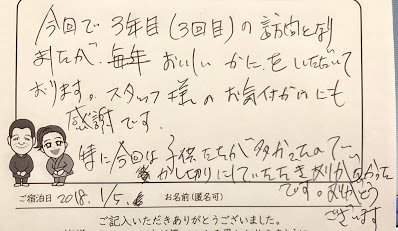 今回で3年目(3回目)の訪問となり
ましたが、毎年おいしいかにをいただいて
おります。スタッフ様のお気付かいにも
感謝です。
特に今回は子供たちが多かったので、
貸し切りにしていただきありがたかった
です。ありがとう
ございます
ご宿泊日 2018. 1/5.
お名前(匿名可)
ご記入いただきありがとうございました。